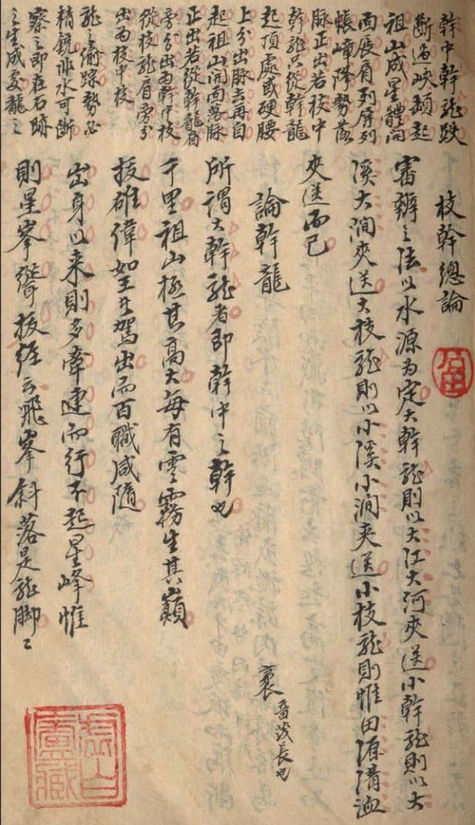 幹中幹龍跌
斷過峽頓起
祖山成星體開
面展肩列屏列
帳嶂降勢落
脉正出若枝中
幹龍只從幹龍
起頂處或硬腰
上分出脉去再自
起祖山開面落脉
正出若從幹龍肩
旁分出而幹中枝
從枝龍肩旁分
出而枝中枝
龍之踪勢必
精銳非水可斷
察之即在石跡
之生成龍之
枝幹總論
審辨之法以水源為定大幹龍則以大江大河夾送小幹龍則以大
溪大澗夾送大枝龍則以小溪小澗夾送小枝龍則惟田源溝洫
夾送而已
論幹龍
所謂大幹龍者即幹中之幹也
千里祖山極其高大每有雲霧生其巔
袤 音茂長也
拔雄偉如王者駕出而百職咸隨
出身以來則多牽連而行不起星峰惟
則星峯聳拔經云飛峯斜落是龍脚〻